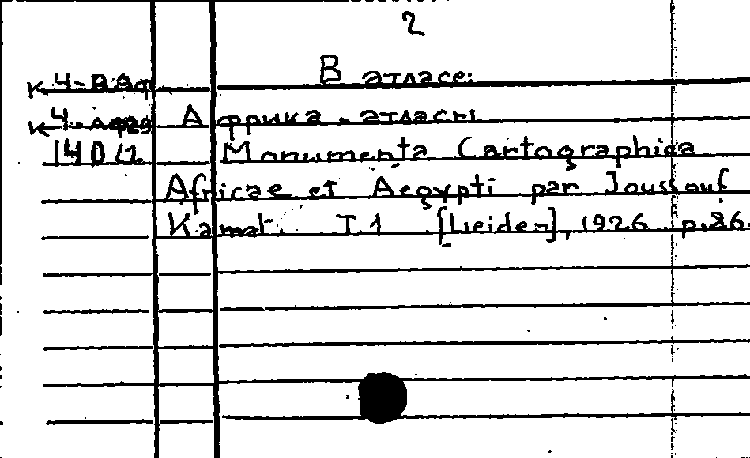 2
В атласе:
К 4-
К 4- Африка - атласы
14012 Monumenta Cartographica
Africae et Aegypti par Joussouf
Kamal. T.1 [Leiden], 1926 p.86.